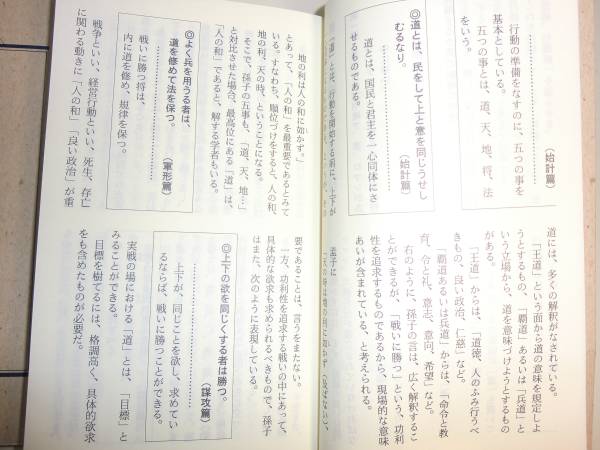 行動の準備をなすのに、五つの事を
基本としている。
五つの事とは、道、天、地、将、法
をいう。
(始計篇)
◎道とは、民をして上と意を同じうせし
むるなり。
(始計篇)
道とは、国民と君主を一心同体にさ
せるものである。
「道」とは、行動を開始する前に、上下が
道には、多くの解釈がなされている。
「王道」という面から道の意味を規定しよ
うとするもの、「覇道」あるいは「兵道」と
いう立場から、道を意味づけようとするもの
がある。
「王道」からは、「道徳、人のふみ行うべ
きもの、良い政治、仁慈」など。
「覇道あるいは兵道」からは、「命令と教
育、令と礼、意志、意向、希望」など。
右のように、孫子の言は、広く解釈するこ
とができるが、「戦いに勝つ」という、功利
性を追求するものであるから、現場的な意味
あいが含まれている、と考えられる。
孟子に
「天の時は地の利に如かず（及ばない）、
地の利は人の和に如かず。」
とあって、「人の和」を最重要であるとみて
いる。すなわち、順位づけをすると、人の和、
地の利、天の時、ということになる。
そこで、孫子の五事も、「道、天、地…」
と対比させた場合、最高位にある「道」は、
「人の和」であると、解する学者もいる。
◎よく兵を用うる者は、
道を修めて法を保つ。
(軍形篇)
戦いに勝つ将は、
内に道を修め、規律を保つ。
戦争といい、経営行動といい、死生、存亡
に関わる動きに「人の和」「良い政治」が重
要であることは、言うをまたない。
一方、功利性を追求する戦いの中にあって、
具体的な欲求も求められるべきもので、孫子
はまた、次のように表現している。
◎上下の欲を同じくする者は勝つ。
(謀攻篇)
上下が、同じことを欲し、求めてい
るならば、戦いに勝つことができる。
実戦の場における「道」とは、「目標」と
みることができる。
目標を樹てるには、格調高く、具体的欲求
をも含めたものが必要だ。